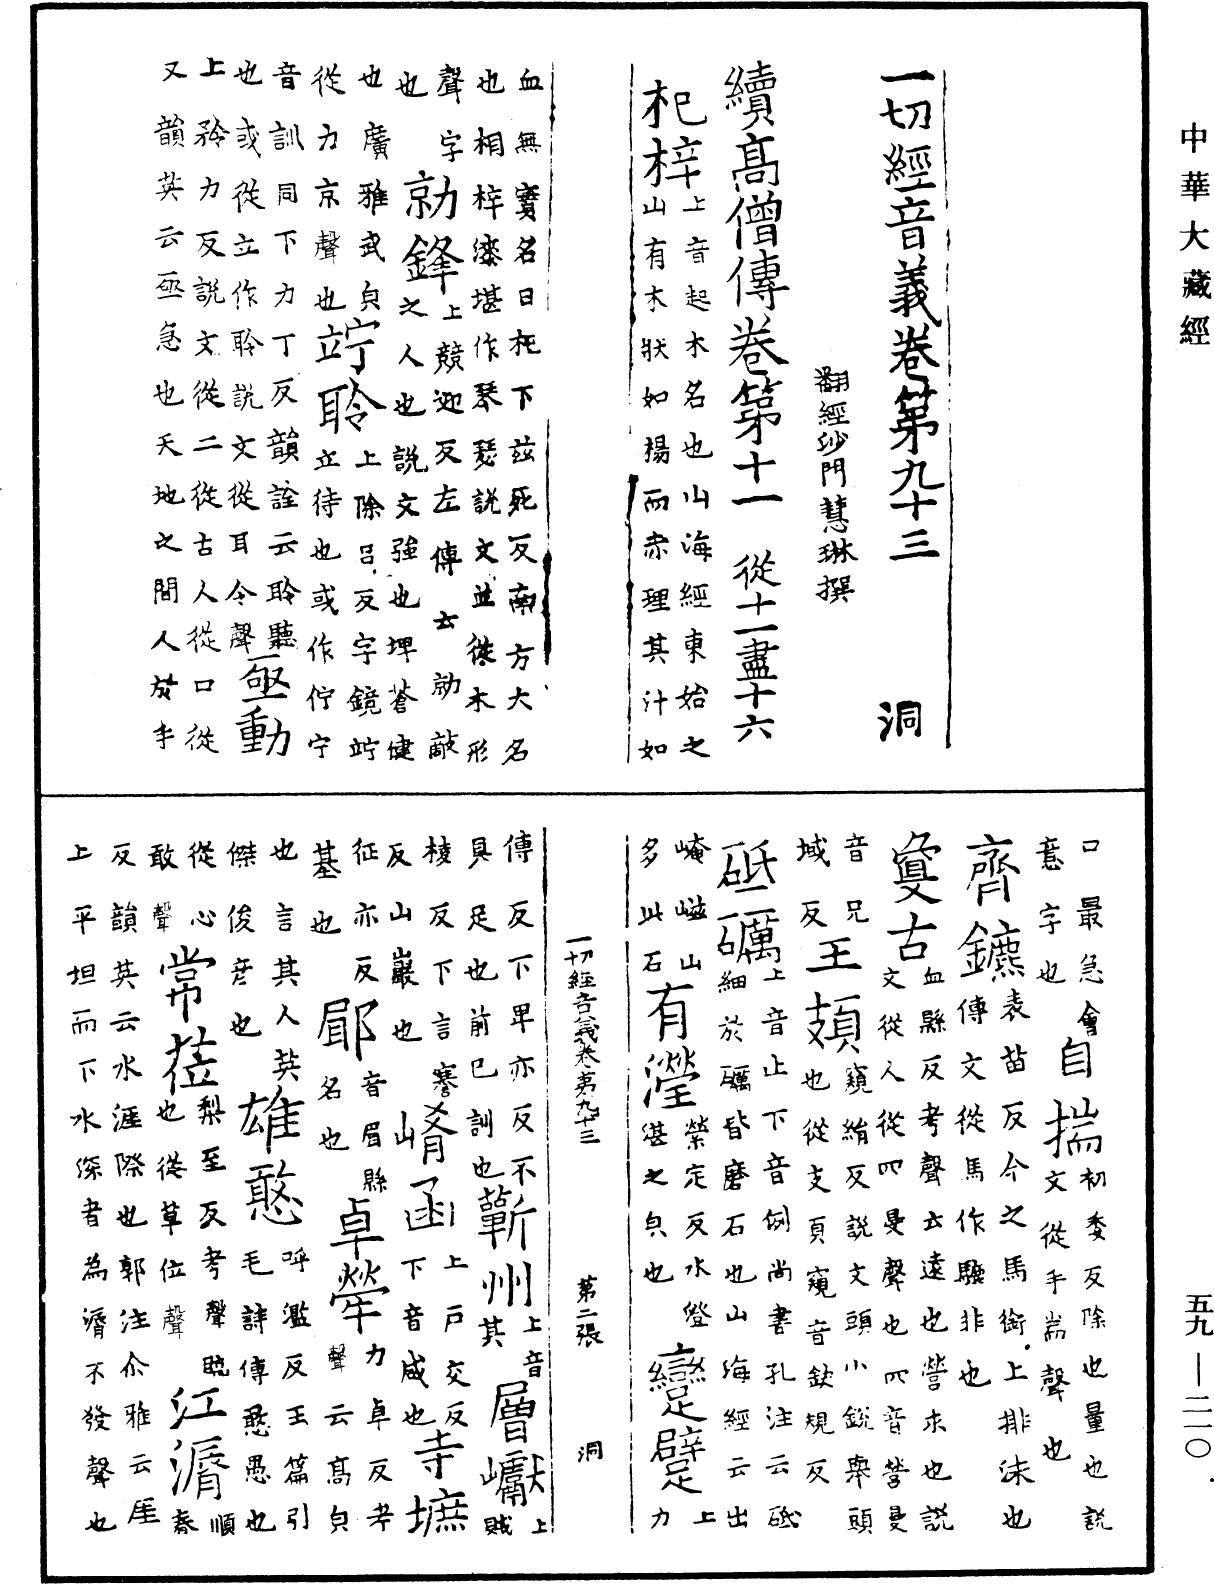 中華大藏經
一切經音義卷第九十三 洞
翻經沙門慧琳撰
續髙僧傳卷第十一 從十一盡十六
杞梓 上音起木名也山海經東始之
山有木狀如楊而赤理其汁如
血無實名曰杞下兹死反南方大名
也相梓漆堪作琴瑟說文並從木形
聲字也 勍鋒 上競迎反左傳云勍敵
之人也說文強也埤蒼健
也廣雅武皃從力京聲也 竚聆 上除吕反字鏡竚
立待也或作佇宁
音訓同下力丁反韻詮云聆聽
也或從立作聆說文從耳令聲 亟動
上矜力反說文從二從古人從口從
又韻英云亟急也天地之間人於手
口最急會意字也 自揣 初委反除也量也説
文從手耑聲也
齊鑣 表苗反今之馬銜上排沫也
傳文從馬作驫非也
敻古 血縣反考聲云遠也營求也説
文從人從䀏旻聲也䀏音營旻
音兄域反 王頍 窺䋺反説文頭小鋭舉頭
也從支頁窺音欽規反
砥礪 上音止下音例尚書孔注云砥
細於礪皆磨石也山海經云出
崦嵫山多此石 有瀅 縈定反水澄
湛之皃也 躄 上力
一切經音義卷第九十三 第二張 洞
傳反下畢亦反不具足也前已訓也 蘄州 上音其 層巘 上賊
棱反下言蹇反山巖也 崤函 上戶交反下音咸也 寺墌
征亦反基也 郿 音眉縣名也 卓犖 力卓反考
聲云髙皃
也言其人英傑俊彦也 雄憨 呼濫反玉篇引
毛詩傳憨愚也
從心敢聲 常蒞 梨至反考聲臨
也從草位聲 江漘 順春
反韻英云水涯際也郭注尒雅云厓
上平坦而下水深者為漘不發聲也
五九—二一〇